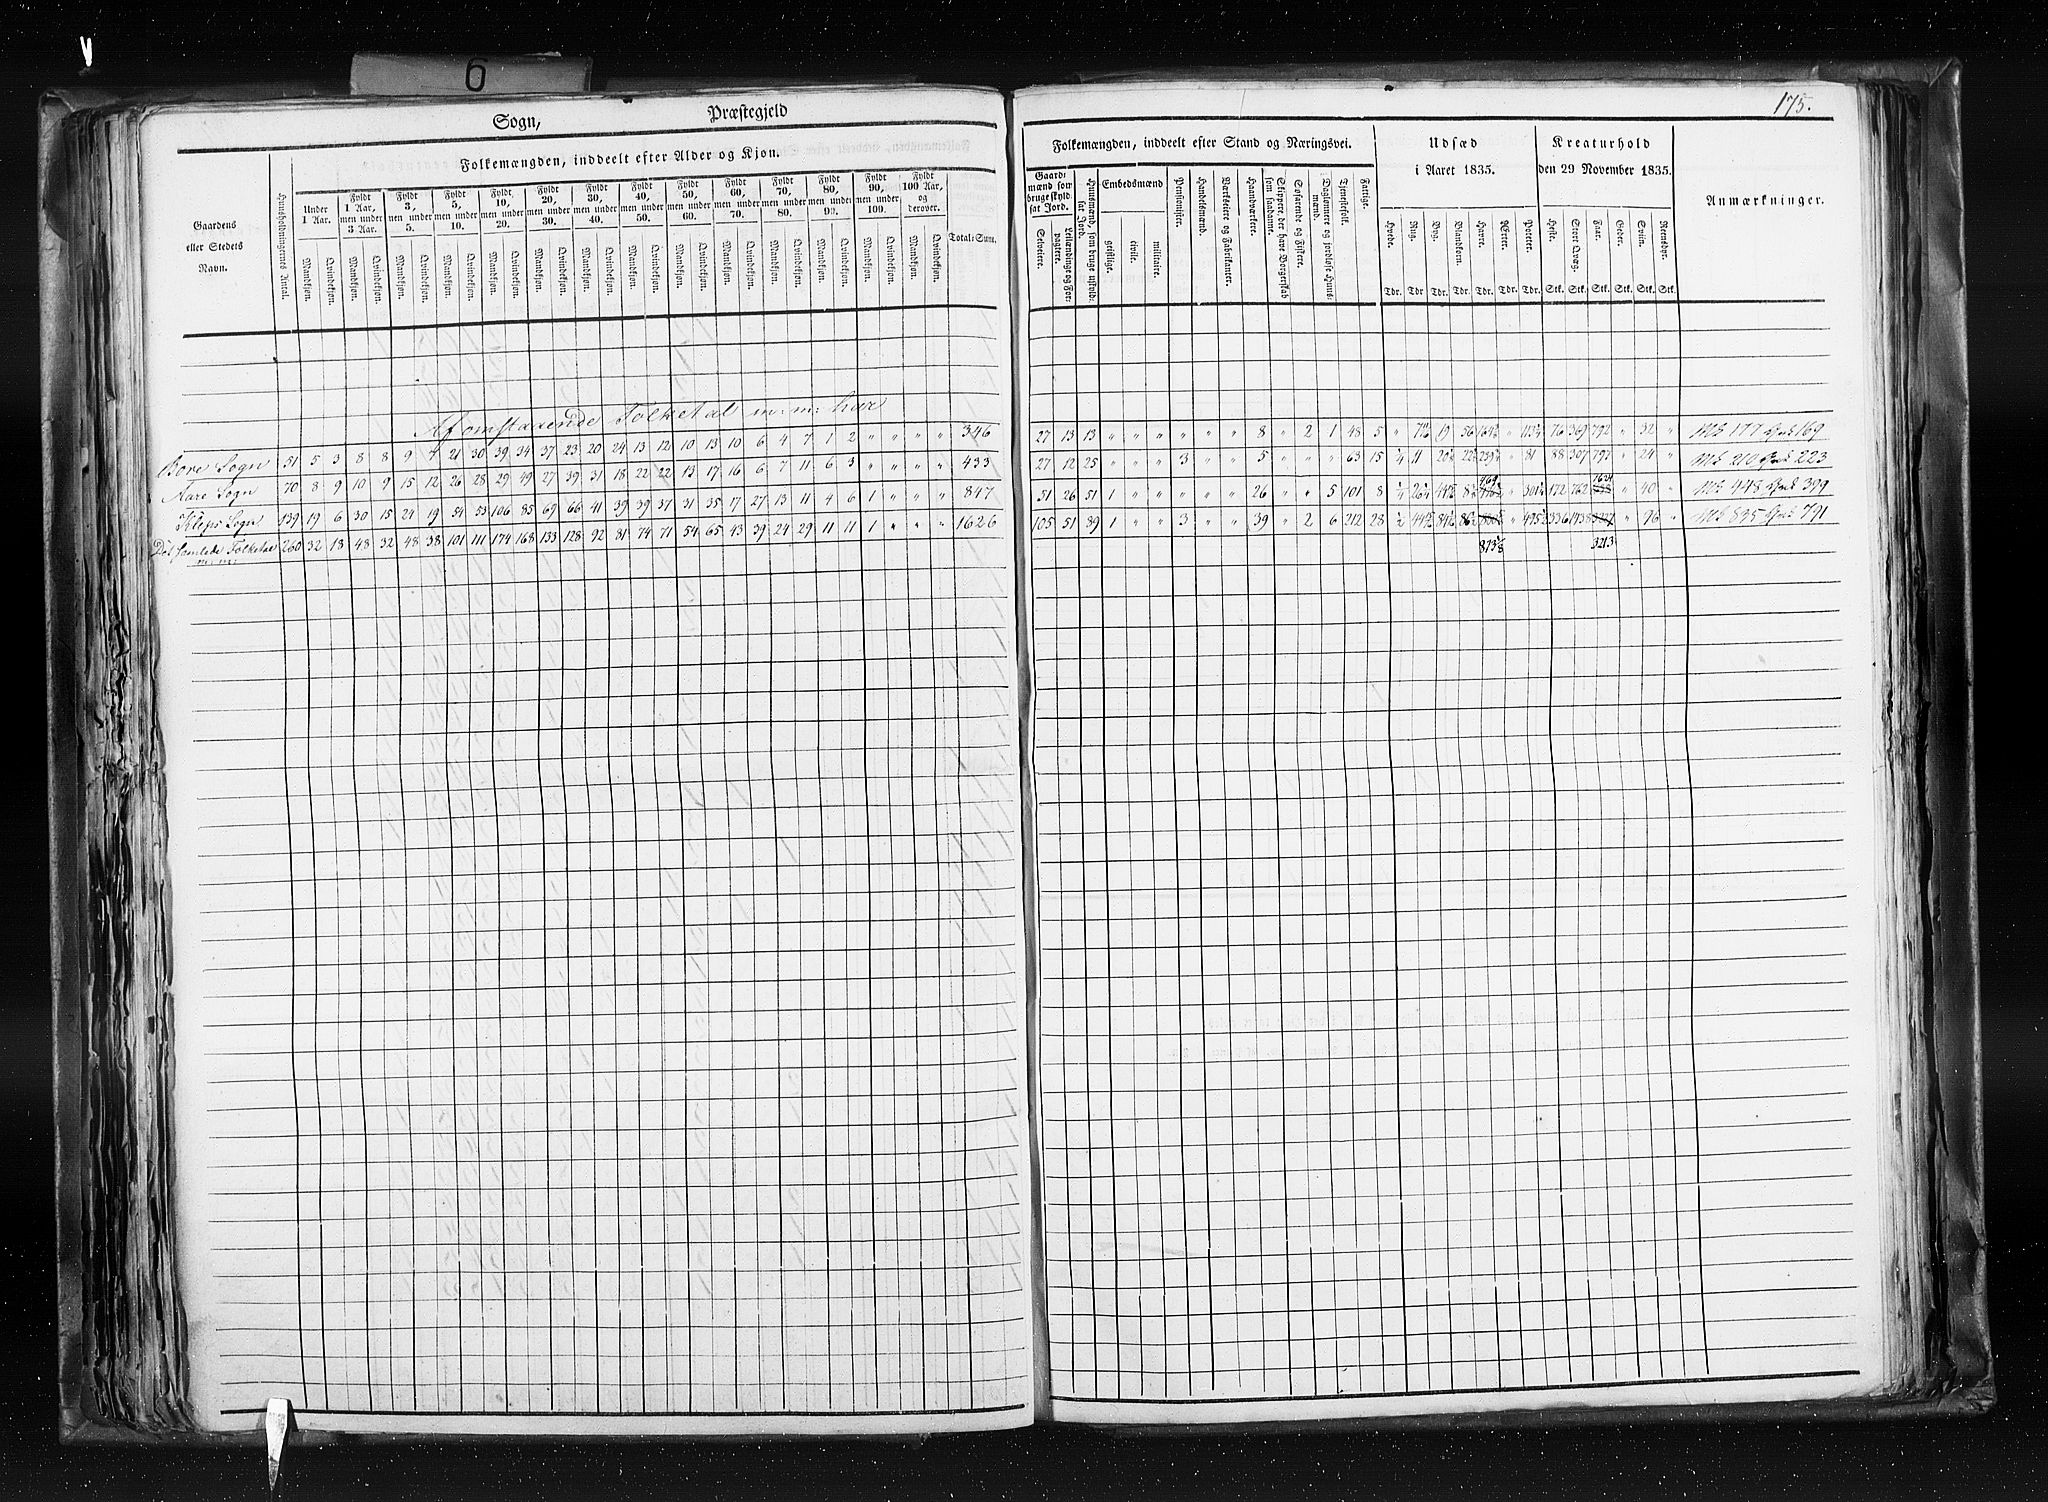 6
Sogn, Præstegjeld
Folkemængden, inddeelt efter Alder og Kjøn.
Gaardens eller Stedets Navn.
Huusholdningernes Antal.
Under 1 Aar.
Fyldt 1 Aar, men under 3 Aar.
Fyldt 3, men under 5.
Fyldt 5, men under 10.
Fyldt 10, men under 20.
Fyldt 20, men under 30.
Fyldt 30, men under 40.
Fyldt 40, men under 50.
Fyldt 50, men under 60.
Fyldt 60, men under 70.
Fyldt 70, men under 80.
Fyldt 80, men under 90.
Fyldt 90, men under 100.
Fyldt 100 Aar, og derover.
Total-Sum.
Mandkjøn. Qvindekjøn. Mandkjøn. Qvindekjøn. Mandkjøn. Qvindekjøn. Mandkjøn. Qvindekjøn. Mandkjøn. Qvindekjøn. Mandkjøn. Qvindekjøn. Mandkjøn. Qvindekjøn. Mandkjøn. Qvindekjøn. Mandkjøn. Qvindekjøn. Mandkjøn. Qvindekjøn. Mandkjøn. Qvindekjøn. Mandkjøn. Qvindekjøn. Mandkjøn. Qvindekjøn. Mandkjøn. Qvindekjøn.
Af omstaaende Folketal m: m: har
Bore Sogn 51 5 3 8 8 9 7 21 30 39 34 37 23 20 24 13 12 10 13 10 6 4 7 1 2 " " " " 346
Aare Sogn 70 8 9 10 9 15 12 26 28 29 49 27 39 31 18 22 22 13 17 16 6 7 11 6 3 " " " " 433
Kleps Sogn 139 19 6 30 15 24 19 54 53 106 85 69 66 41 39 39 37 31 35 17 27 13 11 4 6 1 " " " 847
Det Samlede Folketal m: m: 260 32 18 48 32 48 38 101 111 174 168 133 128 92 81 74 71 54 65 43 39 24 29 11 11 1 " " " 1626
175.
Folkemængden, inddeelt efter Stand og Næringsvei.
Udsæd i Aaret 1835.
Kreaturhold den 29 November 1835.
Anmærkninger.
Gaardmænd som bruge skyldsat Jord.
Selveiere.
Leilændinge og Forpagtere.
Huusmænd, som bruge uskyldsat Jord.
Embedsmænd
geistlige.
civile.
militaire.
Pensionister.
Handelsmænd.
Værkseiere og Fabrikanter.
Haandværkere.
Skippere, der have Borgerskab som saadanne.
Søfarende og Fiskere.
Dagslønnere og jordløse Huusmænd.
Tjenestefolk.
Fattige.
Hvede. Rug. Byg. Blandkorn. Havre. Erter. Poteter.
Heste. Stort Qvæg. Faar. Geder. Sviin. Rensdyr.
Tdr. Tdr. Tdr. Tdr. Tdr. Tdr. Tdr. Stk. Stk. Stk. Stk. Stk. Stk.
27 13 13 " " " " " " 8 " 2 1 48 5 " 19 56 " 76 369 792 " 32 " Mk 177 Qvk 169
27 12 25 " " " 3 " " 5 " " " 63 15 " 81 88 307 797 " 24 " Mk 210 Qvk 223
469 1624
51 26 51 1 " " " " " 26 " " 5 101 8 " 172 762 " 40 " Mk 448 Qvk 399
105 51 89 1 " " 3 " " 39 " 2 6 212 28 " 336 1438 " 96 " Mk 835 Qvk 791
873⅛ 3213